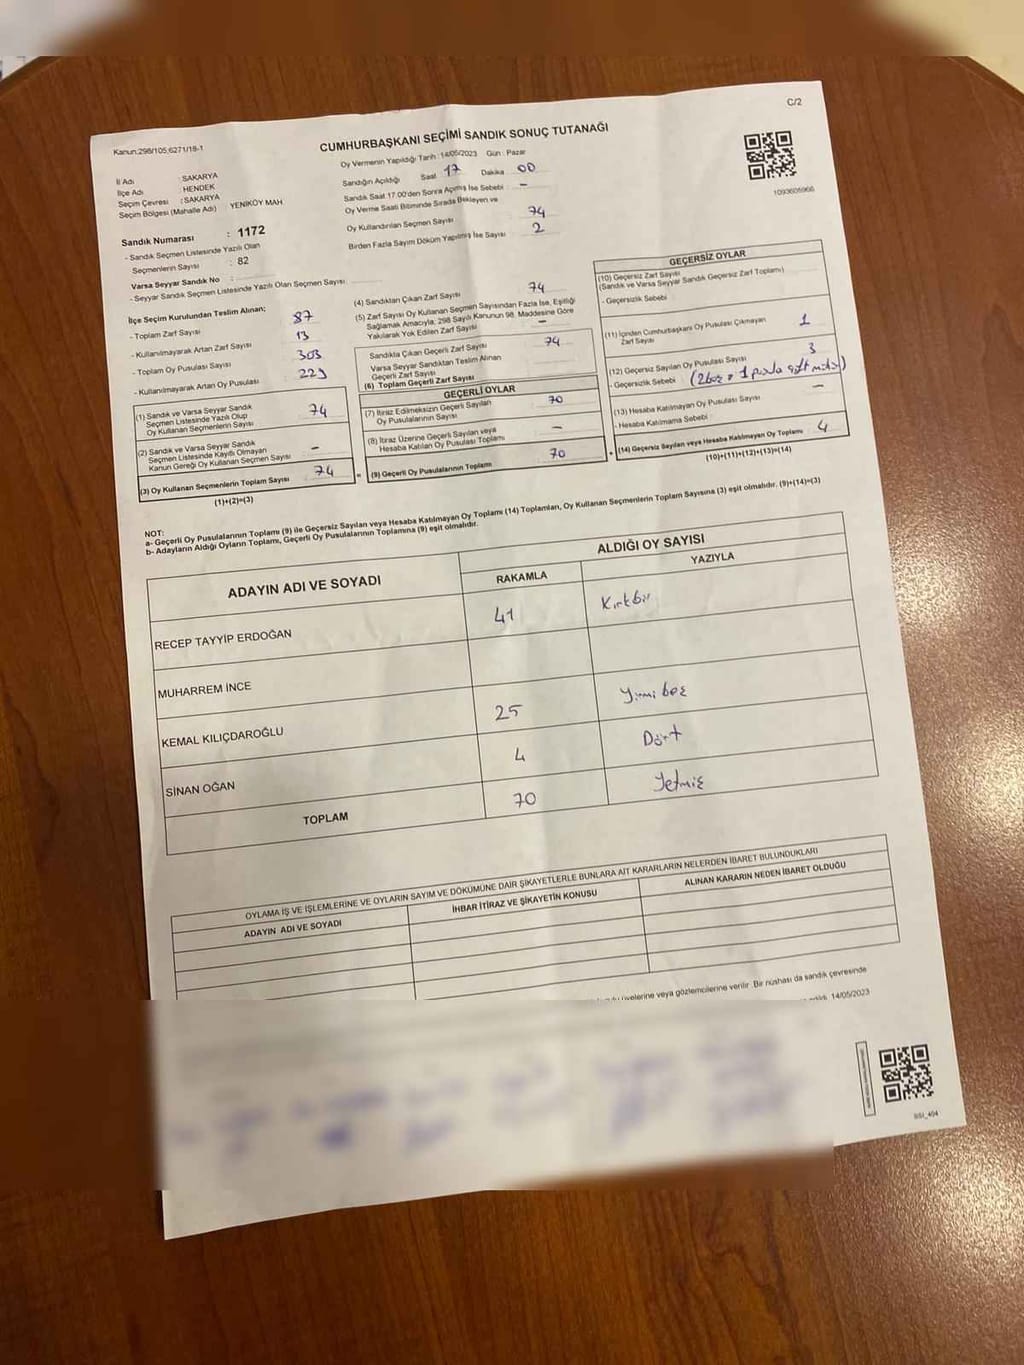 C/2
Kanun:298/105;6271/18-1
CUMHURBAŞKANI SEÇİMİ SANDIK SONUÇ TUTANAĞI
Oy Vermenin Yapıldığı Tarih : 14/05/2023 Gün : Pazar
İl Adı : SAKARYA
İlçe Adı : HENDEK
Seçim Çevresi : SAKARYA
Seçim Bölgesi (Mahalle Adı) YENİKÖY MAH
Sandığın Açıldığı Saat 17 Dakika 00
Sandık Saat 17:00'den Sonra Açılmış İse Sebebi -
Oy Verme Saati Bitiminde Sırada Bekleyen ve
Oy Kullandırılan Seçmen Sayısı 74
Birden Fazla Sayım Döküm Yapılmış İse Sayısı 2
1093605966
Sandık Numarası : 1172
- Sandık Seçmen Listesinde Yazılı Olan
Seçmenlerin Sayısı : 82
Varsa Seyyar Sandık No :
- Seyyar Sandık Seçmen Listesinde Yazılı Olan Seçmen Sayısı :
İlçe Seçim Kurulundan Teslim Alınan;
- Toplam Zarf Sayısı 87
- Kullanılmayarak Artan Zarf Sayısı 13
- Toplam Oy Pusulası Sayısı 303
- Kullanılmayarak Artan Oy Pusulası 229
(1) Sandık ve Varsa Seyyar Sandık
Seçmen Listesinde Yazılı Olup
Oy Kullanan Seçmenlerin Sayısı 74
(2) Sandık ve Varsa Seyyar Sandık
Seçmen Listesinde Kayıtlı Olmayan
Kanun Gereği Oy Kullanan Seçmen Sayısı -
(3) Oy Kullanan Seçmenlerin Toplam Sayısı 74
(1)+(2)=(3)
(4) Sandıktan Çıkan Zarf Sayısı 74
(5) Zarf Sayısı Oy Kullanan Seçmen Sayısından Fazla İse, Eşitliği
Sağlamak Amacıyla, 298 Sayılı Kanunun 98. Maddesine Göre
Yakılarak Yok Edilen Zarf Sayısı -
Sandıkta Çıkan Geçerli Zarf Sayısı 74
Varsa Seyyar Sandıktan Teslim Alınan
Geçerli Zarf Sayısı
(6) Toplam Geçerli Zarf Sayısı
GEÇERLİ OYLAR
(7) İtiraz Edilmeksizin Geçerli Sayılan
Oy Pusulalarının Sayısı 70
(8) İtiraz Üzerine Geçerli Sayılan veya
Hesaba Katılan Oy Pusulası Toplamı -
= (9) Geçerli Oy Pusulalarının Toplamı 70
GEÇERSİZ OYLAR
(10) Geçersiz Zarf Sayısı
(Sandık ve Varsa Seyyar Sandık Geçersiz Zarf Toplamı)
- Geçersizlik Sebebi
(11) İçinden Cumhurbaşkanı Oy Pusulası Çıkmayan
Zarf Sayısı 1
(12) Geçersiz Sayılan Oy Pusulası Sayısı 3
- Geçersizlik Sebebi
(13) Hesaba Katılmayan Oy Pusulası Sayısı -
- Hesaba Katılmama Sebebi
+ (14) Geçersiz Sayılan veya Hesaba Katılmayan Oy Toplamı 4
(10)+(11)+(12)+(13)=(14)
NOT:
a- Geçerli Oy Pusulalarının Toplamı (9) ile Geçersiz Sayılan veya Hesaba Katılmayan Oy Toplamı (14) Toplamları, Oy Kullanan Seçmenlerin Toplam Sayısına (3) eşit olmalıdır. (9)+(14)=(3)
b- Adayların Aldığı Oyların Toplamı, Geçerli Oy Pusulalarının Toplamına (9) eşit olmalıdır.
ADAYIN ADI VE SOYADI
ALDIĞI OY SAYISI
RAKAMLA YAZIYLA
RECEP TAYYİP ERDOĞAN 41 Kırkbir
MUHARREM İNCE
KEMAL KILIÇDAROĞLU 25 Yirmibeş
SİNAN OĞAN 4 Dört
TOPLAM 70 Yetmiş
OYLAMA İŞ VE İŞLEMLERİNE VE OYLARIN SAYIM VE DÖKÜMÜNE DAİR ŞİKAYETLERLE BUNLARA AİT KARARLARIN NELERDEN İBARET BULUNDUKLARI
ADAYIN ADI VE SOYADI İHBAR İTİRAZ VE ŞİKAYETİN KONUSU ALINAN KARARIN NEDEN İBARET OLDUĞU
üyelerine veya gözlemcilerine verilir. Bir nüshası da sandık çevresinde
14/05/2023